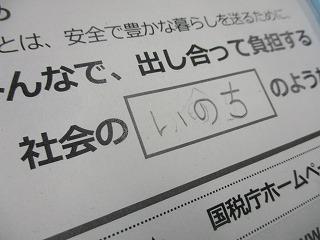 とは、安全で豊かな暮らしを送るために、
んなで、出し合って負担する
社会の いのち のよう
国税庁ホームペ